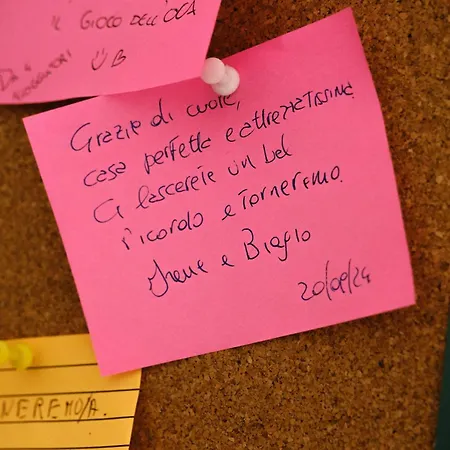 IL GIOCO DELL'OCA
DA 4
Grazie di cuore,
casa perfetta e attrezzatissima
Ci lascerete un bel
ricordo e torneremo.
Irene e Biagio
20/09/24
NEREMO/A.